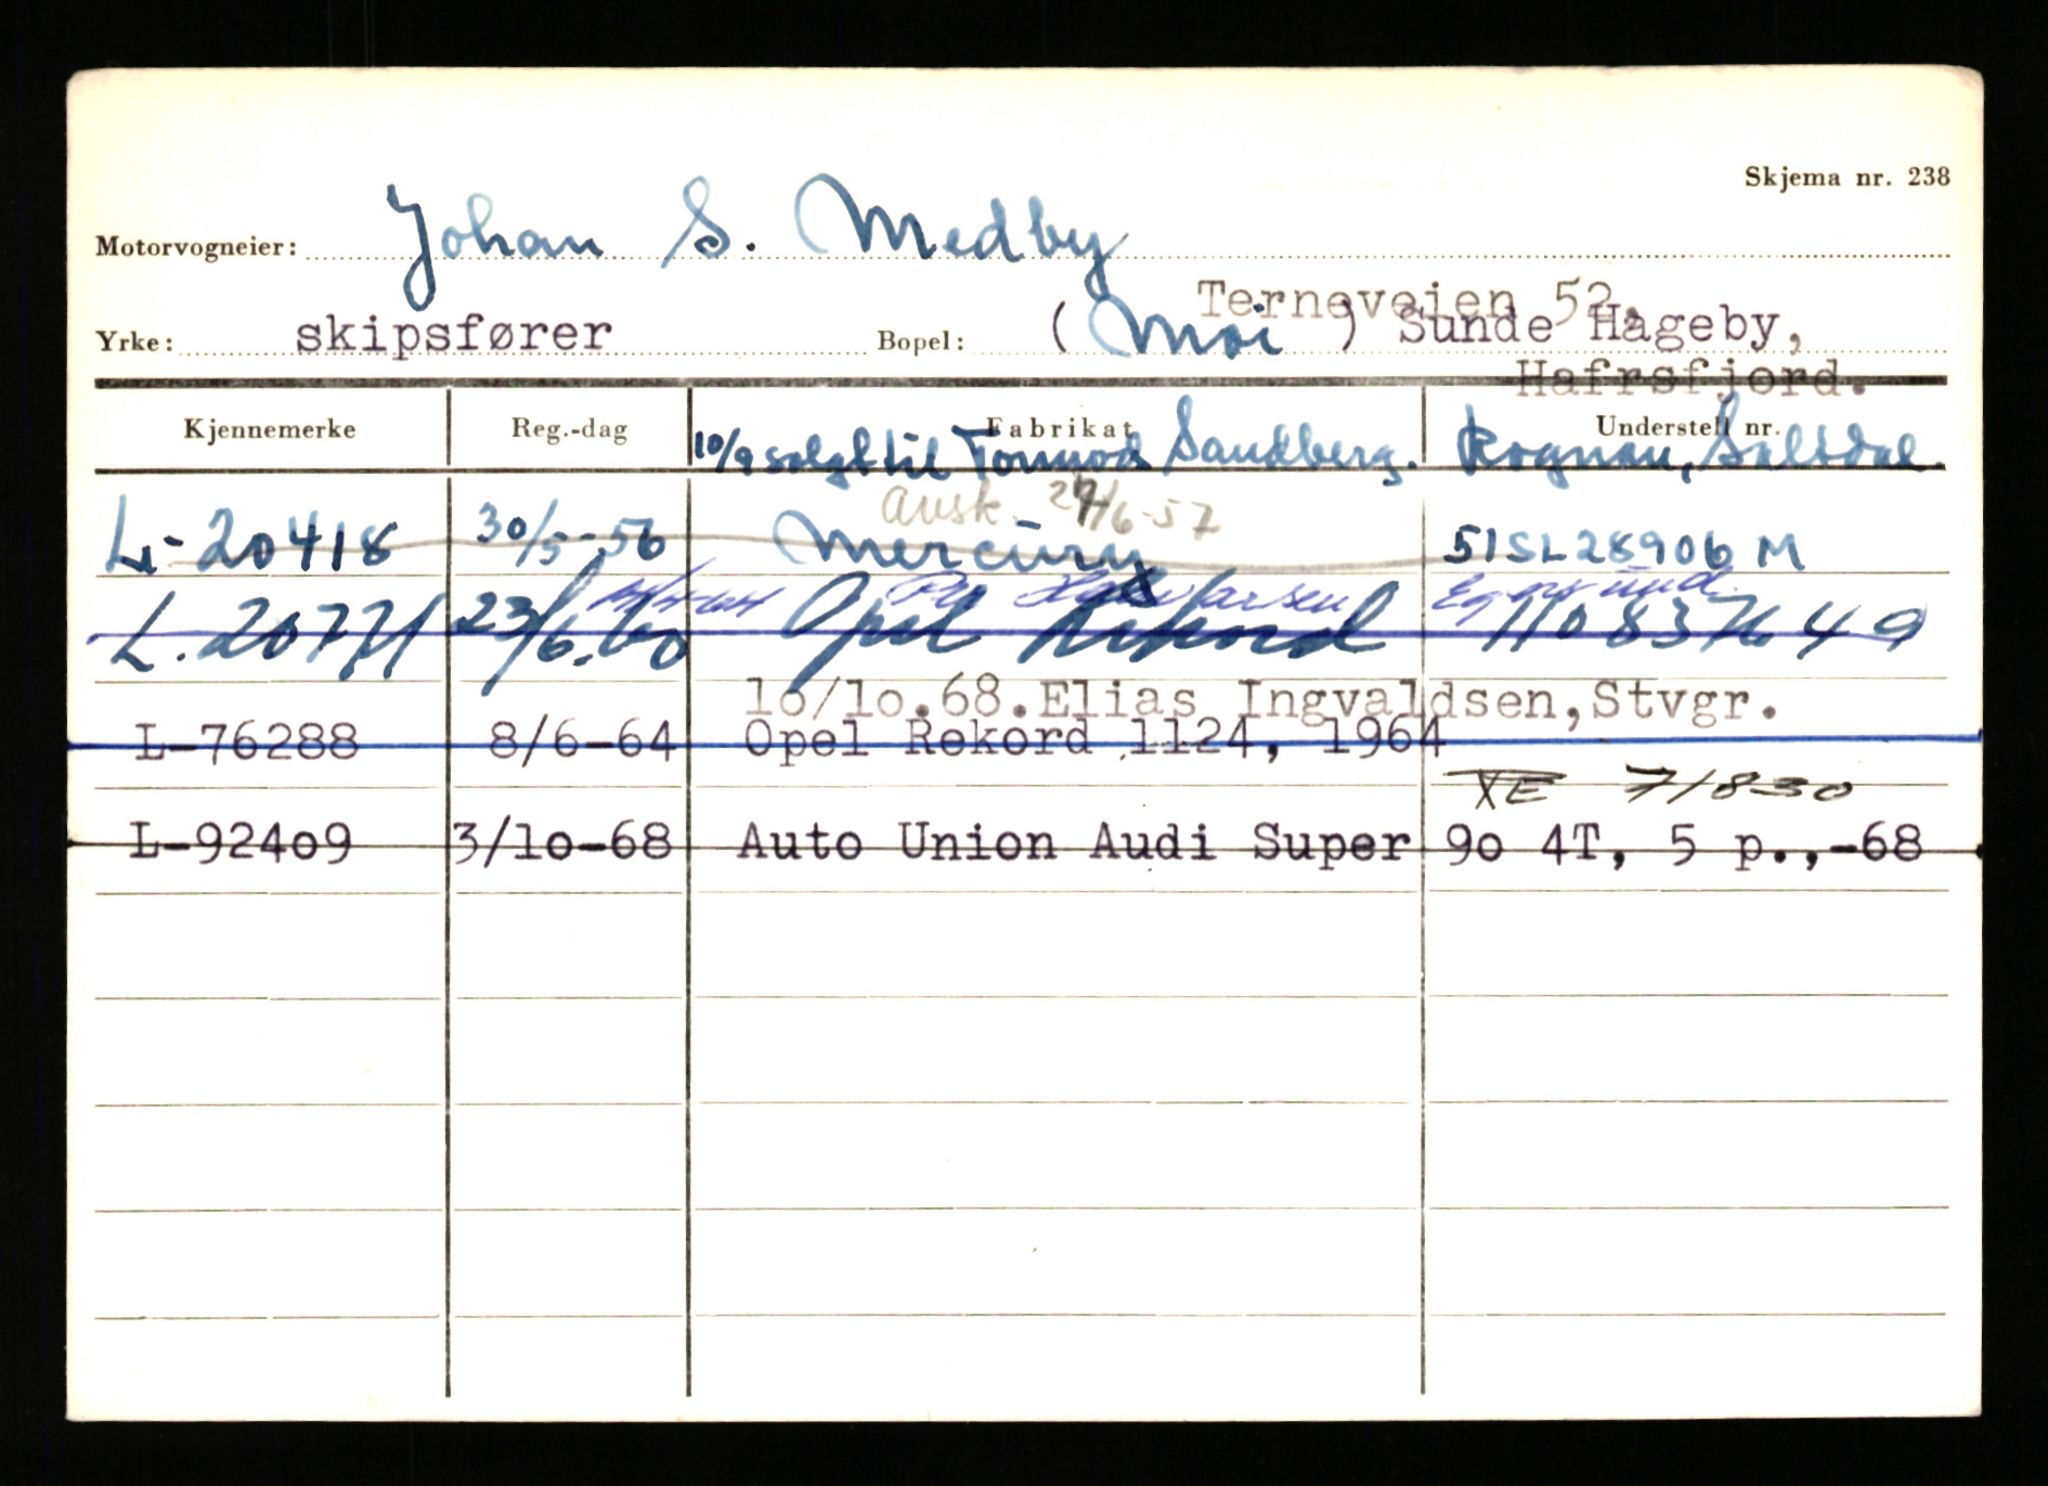 Skjema nr. 238
Motorvogneier: Johan S. Medby
Terneveien 52,
Yrke: skipsfører Bopel: ( Moi ) Sunde Hageby,
Hafrsfjord.
Kjennemerke Reg.-dag Fabrikat Understell nr.
10/9 solgt til Tormod Sandberg. Rognan, Saltdal
avsk. 27/6-57
L-20418 30/5-56 Mercury 51SL28906 M
Halvorsen Egersund.
L.20771 23/6.60 Opel Rekord 110837649
10/10.68. Elias Ingvaldsen, Stvgr.
L-76288 8/6-64 Opel Rekord 1124, 1964
XE 71830
L-92409 3/10-68 Auto Union Audi Super 90 4T, 5 p.,-68